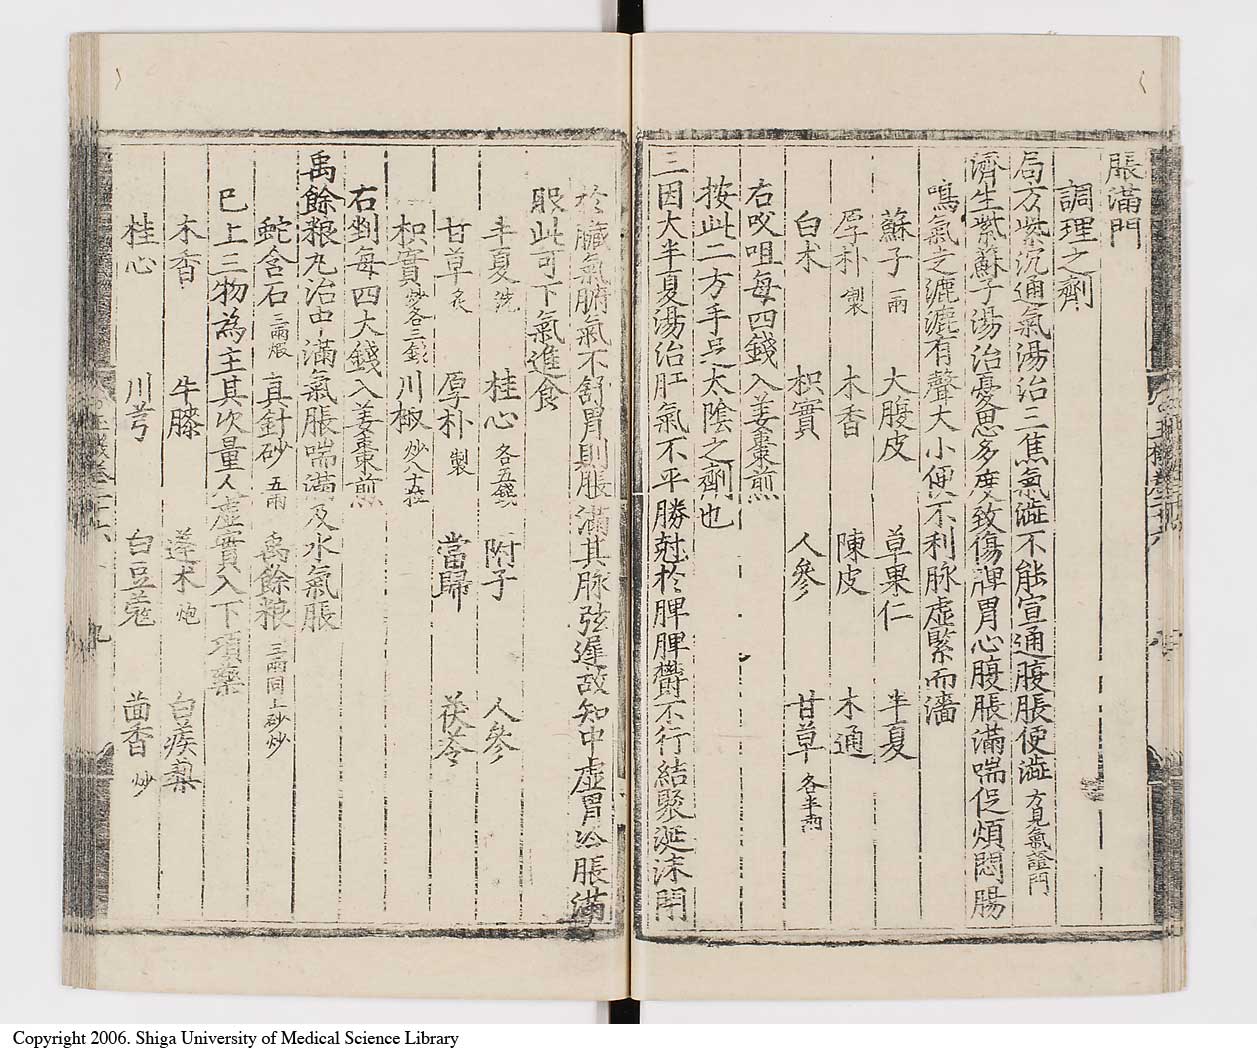 脹滿門
調理之劑
局方紫沉通氣湯治三焦氣澁不能宣通腹脹便澁 方見氣證門
濟生紫蘇子湯治憂思多度致傷脾胃心腹脹滿喘促煩悶腸
鳴氣走漉漉有聲大小便不利脉虛緊而濇
蘇子 一兩 大腹皮 草果仁 半夏
厚朴 製 木香 陳皮 木通
白朮 枳實 人參 甘草 各半兩
右㕮咀每四錢入姜棗煎
按此二方手足太陰之劑也
三因大半夏湯治肛氣不平勝尅於脾脾欝不行結聚涎沫閉
於臟氣腑氣不舒胃則脹滿其脉弦遲故知中虛胃冷脹滿
服此可下氣進食
半夏 洗 桂心 各五錢 附子 人參
甘草 炙 厚朴 製 當歸 茯苓
枳實 炒各三錢 川椒 炒八十粒
右剉每四大錢入姜棗煎
禹餘粮丸治中滿氣脹喘滿及水氣脹
蛇含石 三兩煅 真針砂 五兩 禹餘粮 三兩同上砂炒
已上三物為主其次量人虛實入下項藥
木香 牛膝 蓬朮 炮 白蒺蔾
桂心 川芎 白豆蔻 茴香 炒
九
Copyright 2006. Shiga University of Medical Science Library